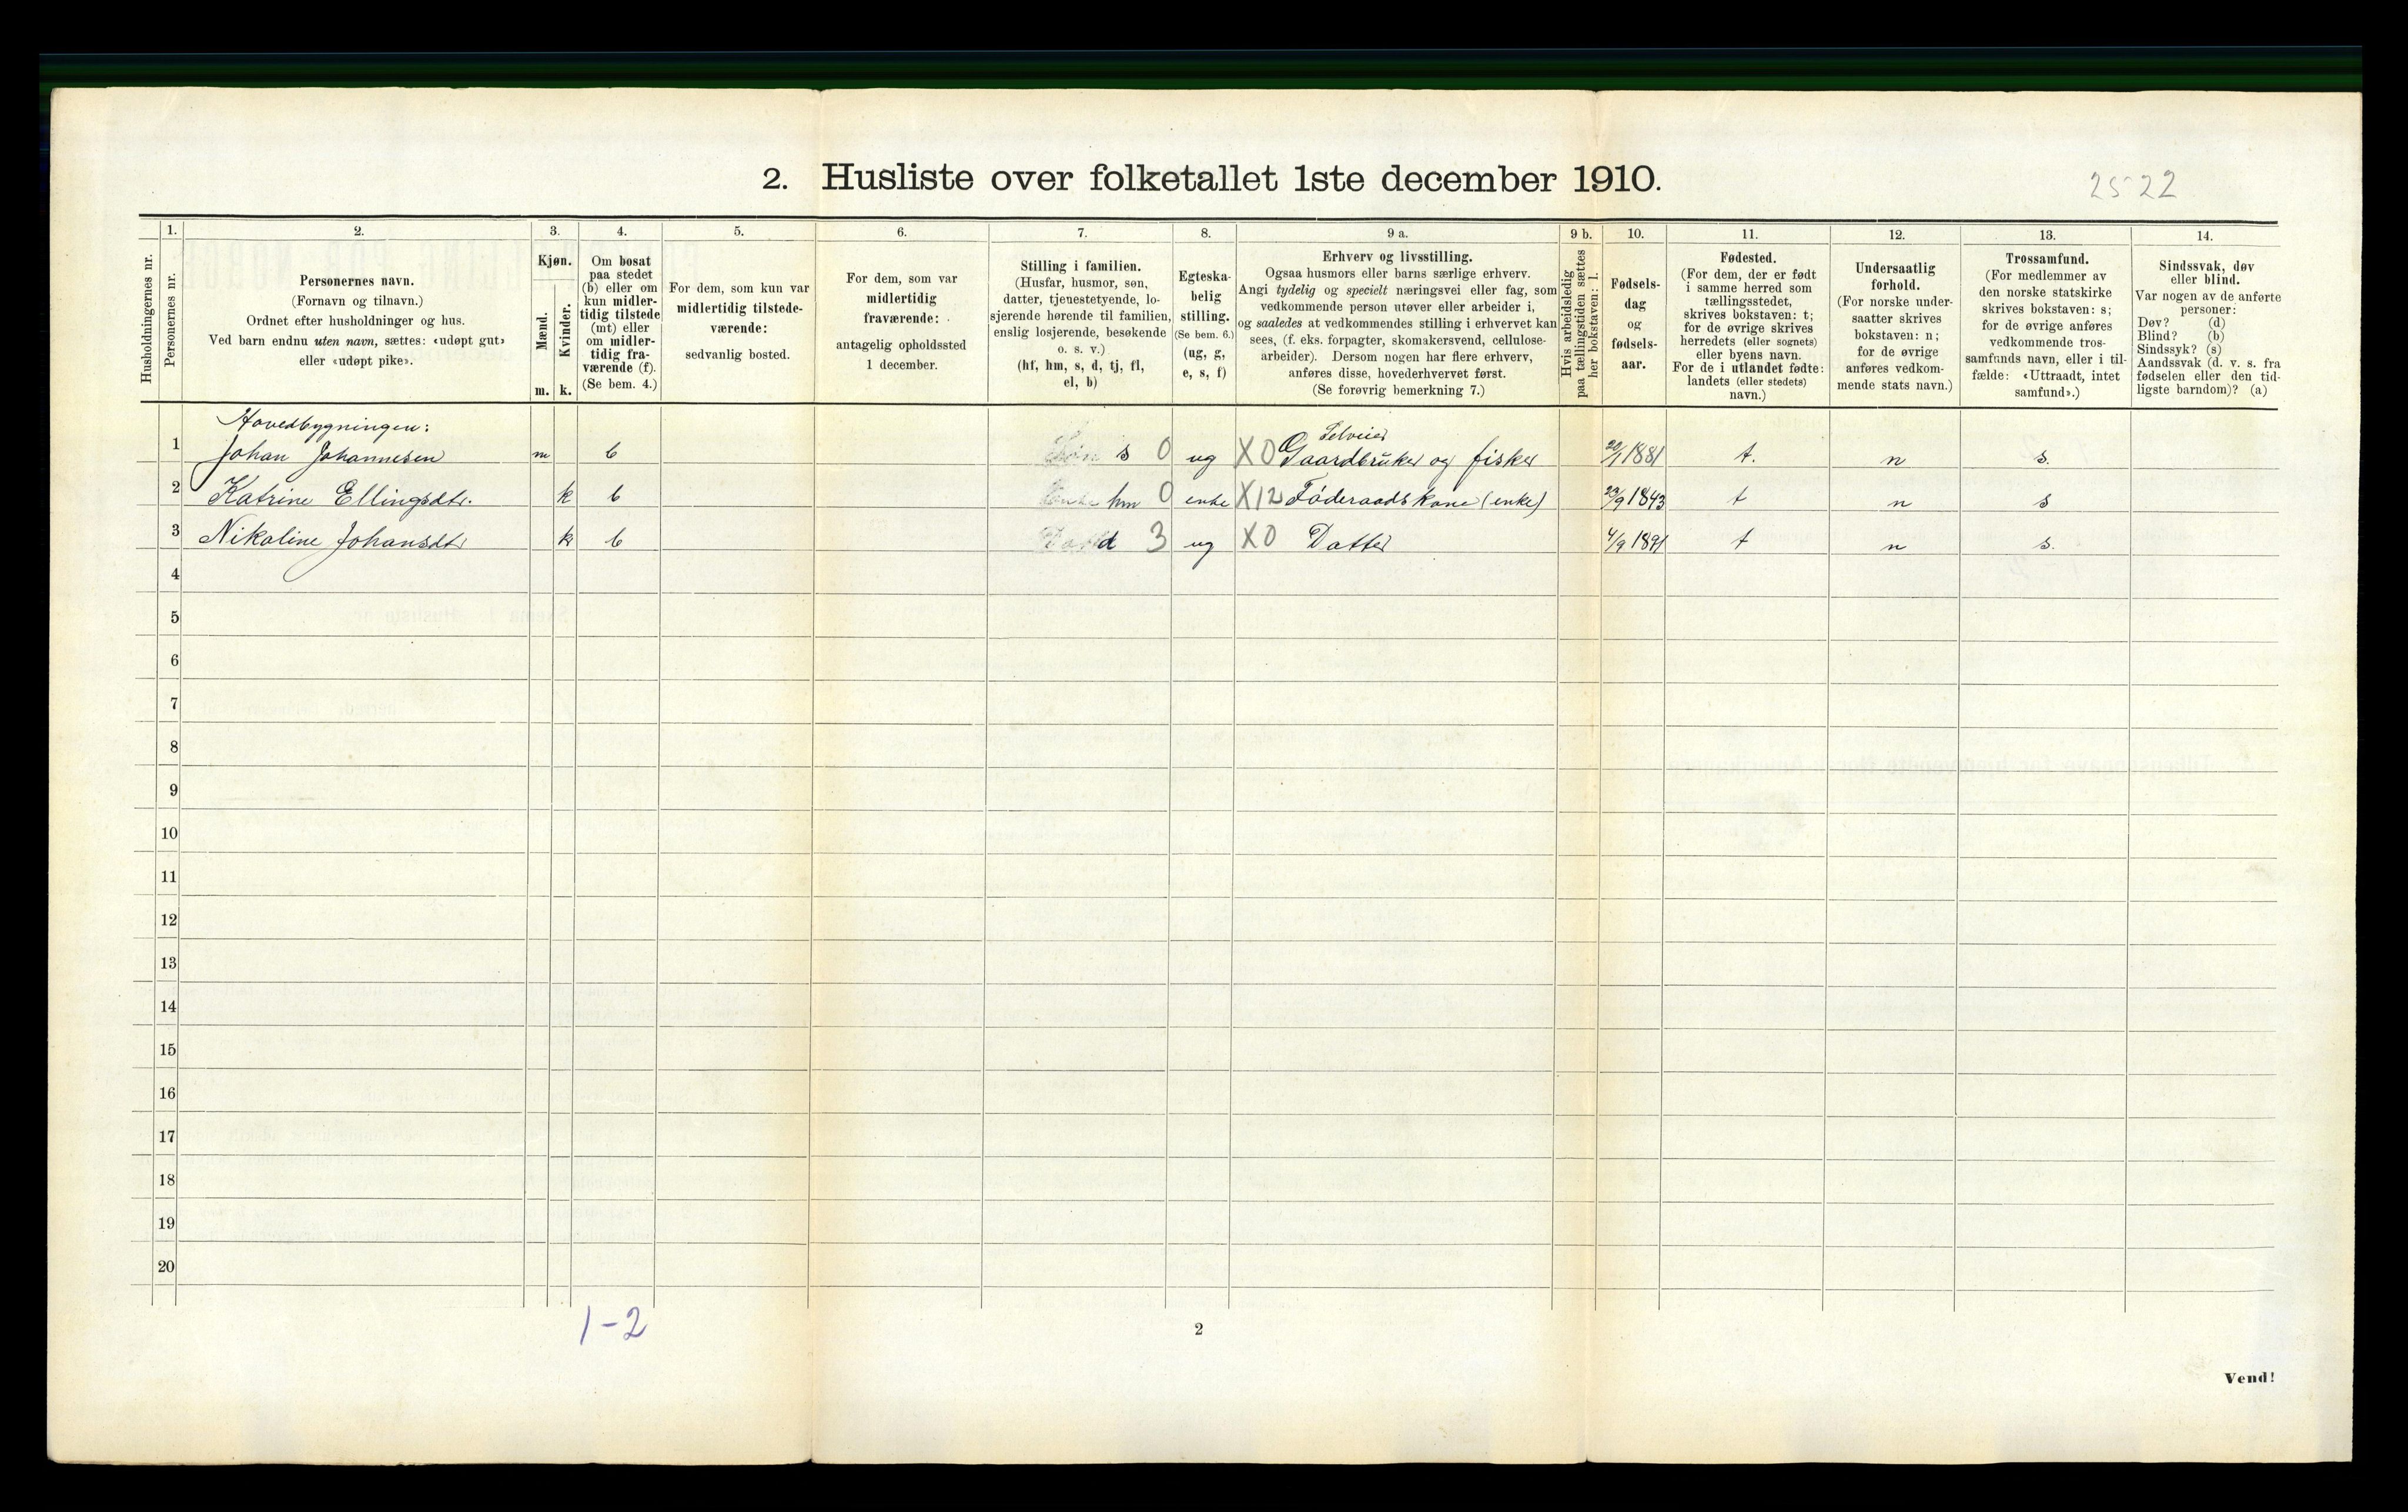 2. Husliste over folketallet 1ste december 1910.
2522
Husholdningernes nr.
1.
Personernes nr.
2.
Personernes navn.
(Fornavn og tilnavn.)
Ordnet efter husholdninger og hus.
Ved barn endnu uten navn, sættes: «udøpt gut»
eller «udøpt pike».
3.
Kjøn.
Mænd.
m.
Kvinder.
k.
4.
Om bosat
paa stedet
(b) eller om
kun midler-
tidig tilstede
(mt) eller
om midler-
tidig fra-
værende (f).
(Se bem. 4.)
5.
For dem, som kun var
midlertidig tilstede-
værende:
sedvanlig bosted.
6.
For dem, som var
midlertidig
fraværende:
antagelig opholdssted
1 december.
7.
Stilling i familien.
(Husfar, husmor, søn,
datter, tjenestetyende, lo-
sjerende hørende til familien,
enslig losjerende, besøkende
o. s. v.)
(hf, hm, s, d, tj, fl,
el, b)
8.
Egteska-
belig
stilling.
(Se bem. 6.)
(ug, g,
e, s, f)
9 a.
Erhverv og livsstilling.
Ogsaa husmors eller barns særlige erhverv.
Angi tydelig og specielt næringsvei eller fag, som
vedkommende person utøver eller arbeider i,
og saaledes at vedkommendes stilling i erhvervet kan
sees, (f. eks. forpagter, skomakersvend, cellulose-
arbeider). Dersom nogen har flere erhverv,
anføres disse, hovederhvervet først.
(Se forøvrig bemerkning 7.)
9 b.
Hvis arbeidsledig
paa tællingstiden sættes
her bokstaven: l.
10.
Fødsels-
dag
og
fødsels-
aar.
11.
Fødested.
(For dem, der er født
i samme herred som
tællingsstedet,
skrives bokstaven: t;
for de øvrige skrives
herredets (eller sognets)
eller byens navn.
For de i utlandet fødte:
landets (eller stedets)
navn.)
12.
Undersaatlig
forhold.
(For norske under-
saatter skrives
bokstaven: n;
for de øvrige
anføres vedkom-
mende stats navn.)
13.
Trossamfund.
(For medlemmer av
den norske statskirke
skrives bokstaven: s;
for de øvrige anføres
vedkommende tros-
samfunds navn, eller i til-
fælde: «Uttraadt, intet
samfund».)
14.
Sindssvak, døv
eller blind.
Var nogen av de anførte
personer:
Døv? (d)
Blind? (b)
Sindssyk? (s)
Aandssvak (d. v. s. fra
fødselen eller den tid-
ligste barndom)? (a)
Hovedbygningen:
Selveier
1 Johan Johannesen m b Søn s 0 ug X0 Gaardbruker og fisker 20/1 1881 t. n s.
2 Katrine Ellingsdtr. k b hm 0 enke X12 Føderaadskone (enke) 29/9 1843 t n s
3 Nikoline Johansdtr k b d 3 ug X0 Datter 4/9 1891 t n s.
4
5
6
7
8
9
10
11
12
13
14
15
16
17
18
19
20
1-2
2
Vend!